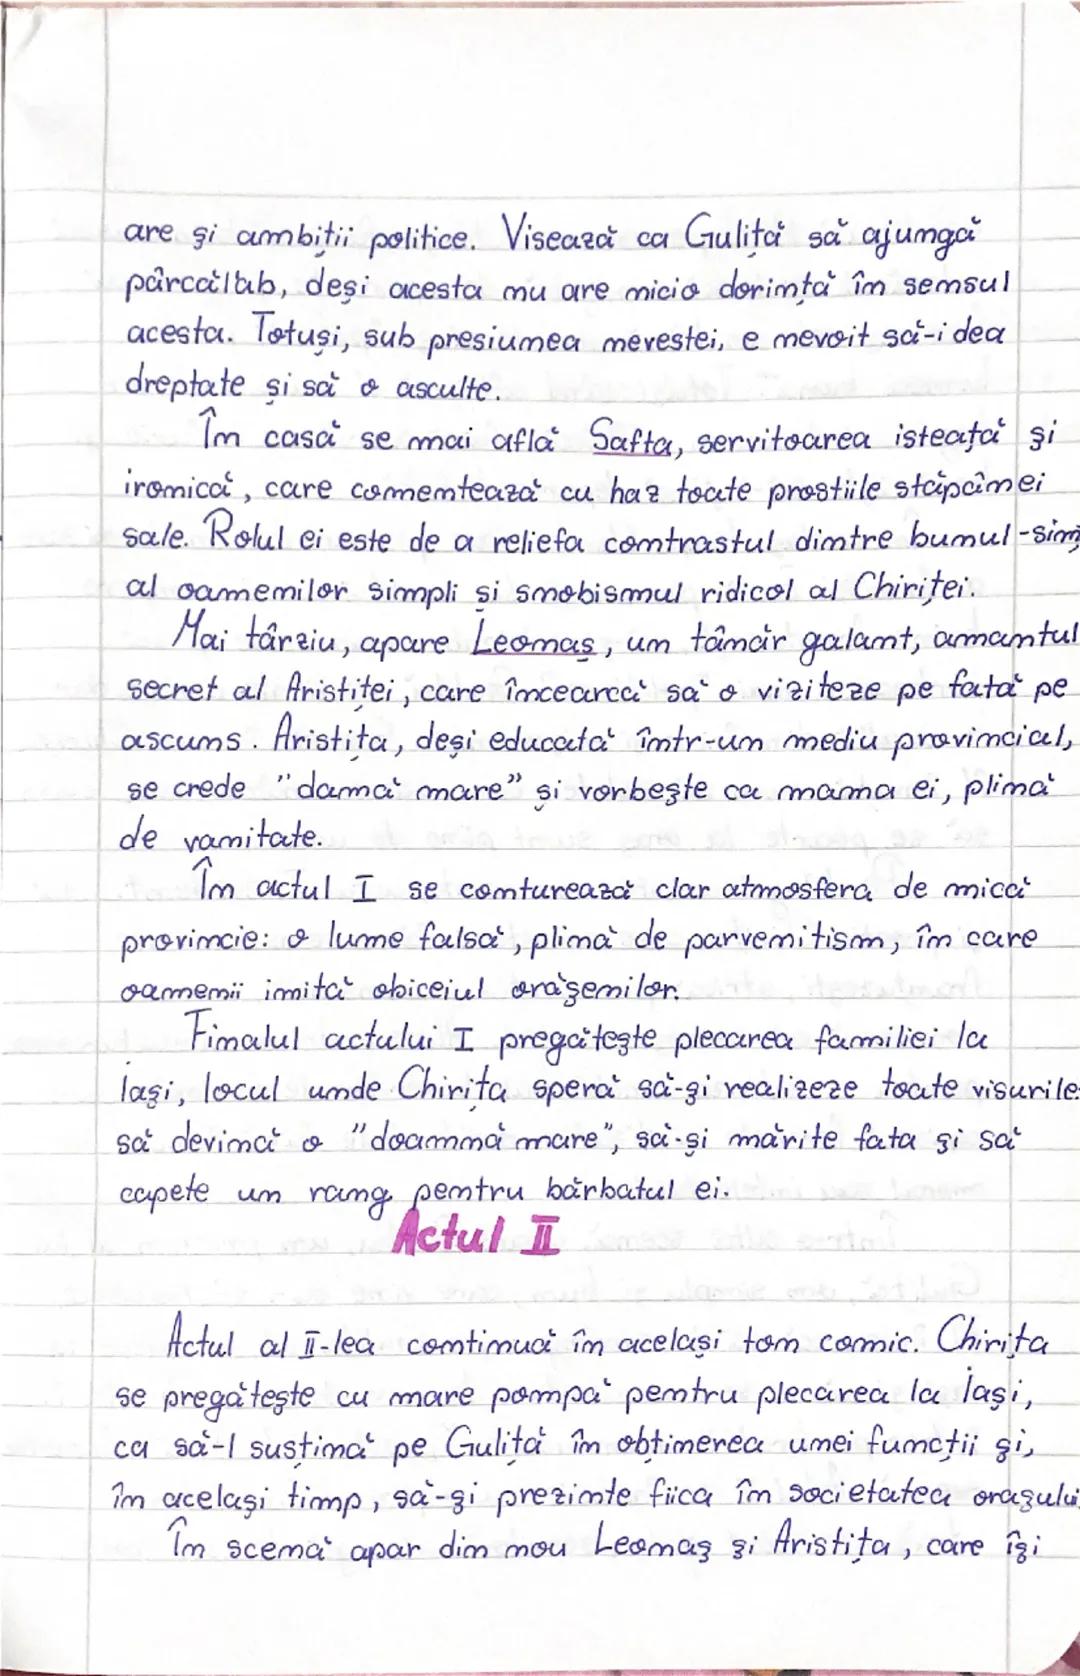 are și ambiții politice. Visează ca Guliță să ajungă
pârcălab, deși acesta nu are nicio dorință în sensul
acesta. Totuși, sub presiunea nevestei, e nevoit să-i dea
dreptate și să o asculte.
În casă se mai află Safta, servitoarea isteață și
ironică, care comentează cu haz toate prostiile stăpânei
sale. Rolul ei este de a reliefa contrastul dintre bunul-simț
al oamenilor simpli și snobismul ridicol al Chiriței.
Mai târziu, apare Leonaș, un tânăr galant, amantul
secret al Aristiței, care încearcă să o viziteze pe fată pe
ascuns. Aristița, deși educată într-un mediu provincial,
se crede "damă mare" și vorbește ca mama ei, plină
de vanitate.
În actul I se conturează clar atmosfera de mică
provincie: o lume falsă, plină de parvenitism, în care
oamenii imită obiceiul orășenilor.
Finalul actului I pregătește plecarea familiei la
Iași, locul unde Chirița speră să-și realizeze toate visurile:
să devină o "doamnă mare", să-și mărite fata și să
capete un rang pentru bărbatul ei.
Actul II
Actul al II-lea continuă în același ton comic. Chirița
se pregătește cu mare pompă pentru plecarea la Iași,
ca să-l susțină pe Guliță în obținerea unei funcții și,
în același timp, să-și prezinte fiica în societatea orașului.
În scenă apar din nou Leonaș și Aristița, care își